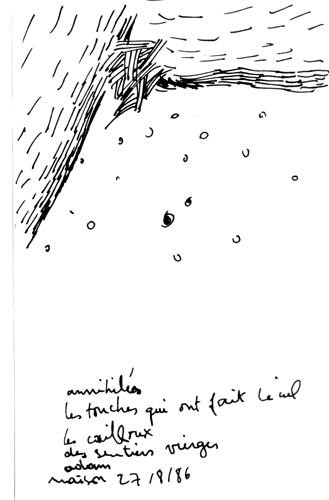 annihilées
les touches qui ont fait le ciel
les cailloux
des sentiers vierges
adam
maison 27/8/86